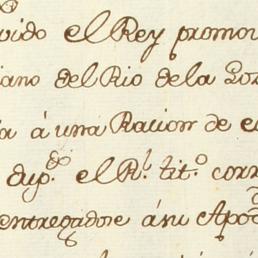 vido el Rey promov
iano del Rio de la Loz
a á una Racion de e
dup.do el R.l tit.o corr
entregadose á su Apo